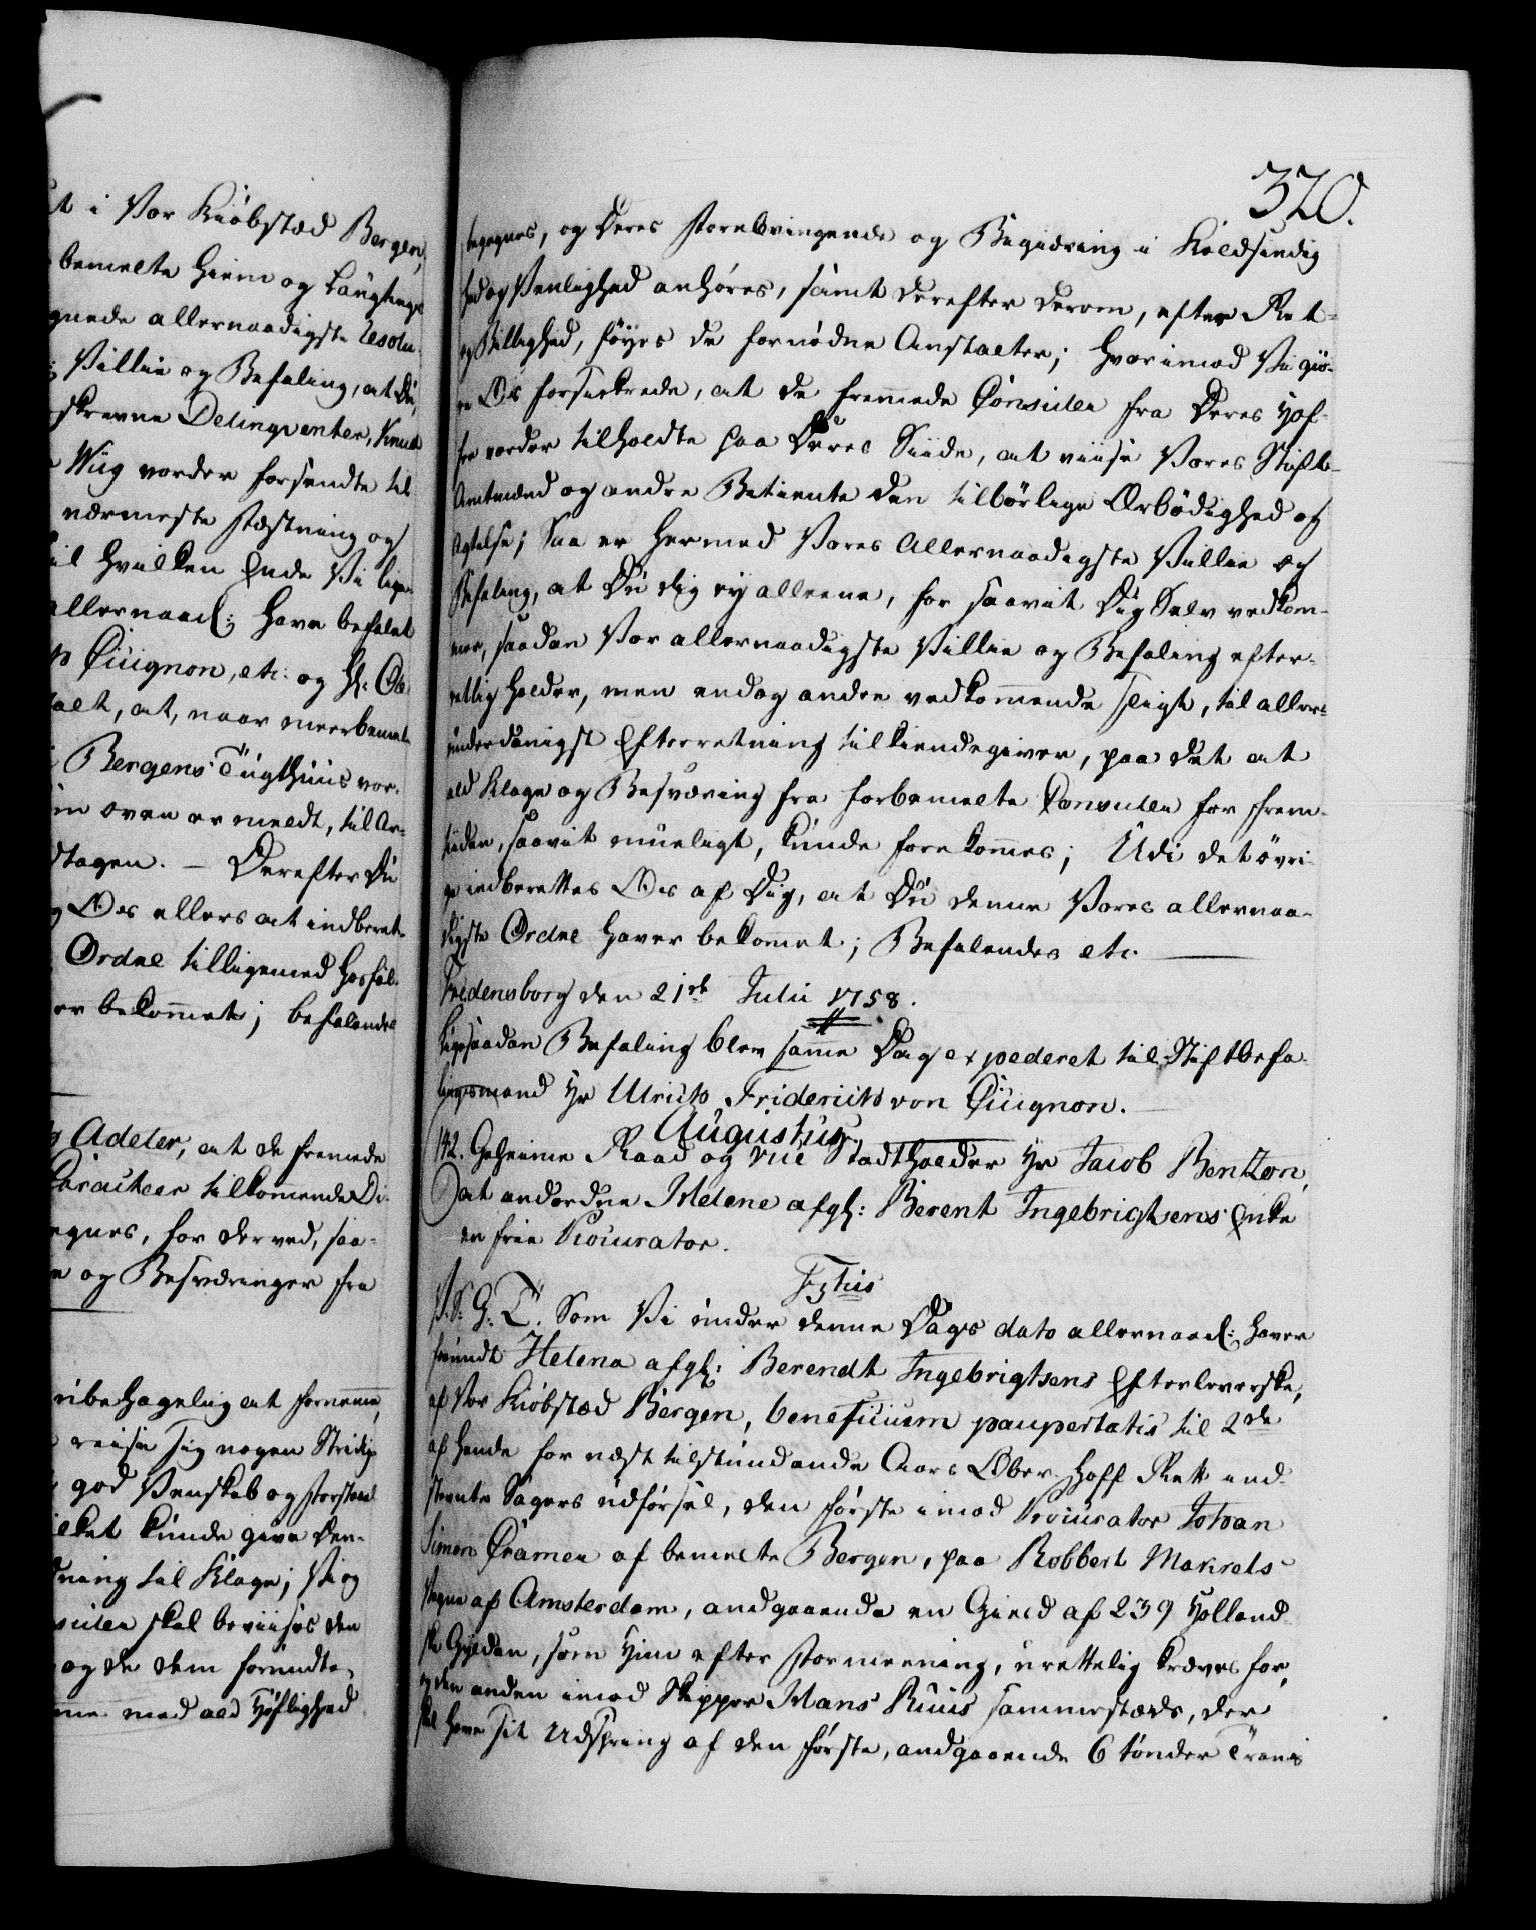 t i Vor Kiöbstæd Bergen,
bemelte Hiem og Laugtings
gnede allernaadigste Resolu-
Villie og Befaling, at Du,
skrevne Delinqventer, Knud
Wiig vorder forsendte til
nærmeste Fæstning og
til hvilken Ende Vi lige-
allernaad: have befalet
Cicignon, etc: og H: Ob
talt, at, naar meerbemelte
i Bergens Tugthuus vor-
oven er meldt, til Ar-
dtagen. – Derefter Du
Os ellers at indberet-
Ordre tilligemed Hosføl-
er bekommet; befalendes
Adeler, at de fremmede
Caracteer tilkommende Di-
egnes, for derved, saa-
og Besværinger fra
ubehagelig at fornemme,
reise sig nogen Stridig-
god Venskab og Forstand
lket kunde give Den-
dning til Klage; Vi og
sulen skal beviises den
og de dem forundte
me med ald Høflighed
320.
begegnes, og Deres Forebringende og Begiæring i Koldsindig-
hed og Venlighed anhøres, samt derefter derom, efter Ret-
og Billighed, føyes de fornødne Anstalter; Hvorimod Vi giø-
re Os forsikrede, at de fremmede Consuler fra Deres Hof-
fer vorder tilholdte paa Deres Siide, at viise Vores Stift-
Amtmænd og andre Betiente den tilbørlige Ærbødighed og
Agtelse; Saa er hermed Vores Allernaadigste Villie og
Befaling, at Du dig ey alleene, for saavit Dig Selv vedkom-
mer, saadan Vor allernaadigste Villie og Befaling efter-
rettlig holder, men endog andre vedkommende sligt, til aller-
underdanigst Efterretning tilkiendegiver, paa det at
ald Klage og Besværing fra forbemelte Consuler for frem-
tiden, saavit mueligt, kunde forekommes; Udi det øvri-
ge indberettes Os af Dig, at Du denne Vores allernaa-
digste Ordre haver bekommet; Befalendes etc.
Fredensborg den 21de Julii 1758.
Ligesaadan Befaling blev samme Dag expederet til Stiftbefa-
lingsmand Hr Ulrich Friderich von Cicignon.
Augustus
142. Geheime Raad og vice Stadtholder Hr Jacob Bentzon,
at anordne Helene afgl: Berent Ingebrigtsens Enke
en frie Procurator.
F3tius
P. S. G. T. Som Vi under denne Dags dato allernaad: haver
forundt Helena afgl: Berendt Ingebrigtsens Efterleverske,
af Vor Kiöbstæd Bergen, beneficium paupertatis til 2de
af hende for næst tilstundende Aars Ober-Hoff Rett ind-
stevnte Sagers udførsel, den første imod Procurator Johan
Simon Cramer af bemelte Bergen, paa Robbert Makrels
Vegne af Amsterdam, angaaende en Gield af 239 Holland-
ske Gylden, som Hun efter Formeening, urettelig kræves for,
og den anden imod Skipper Hans Ruus sammestæds, der
skal have sit Udspring af den første, angaaende 6 tønder Trans